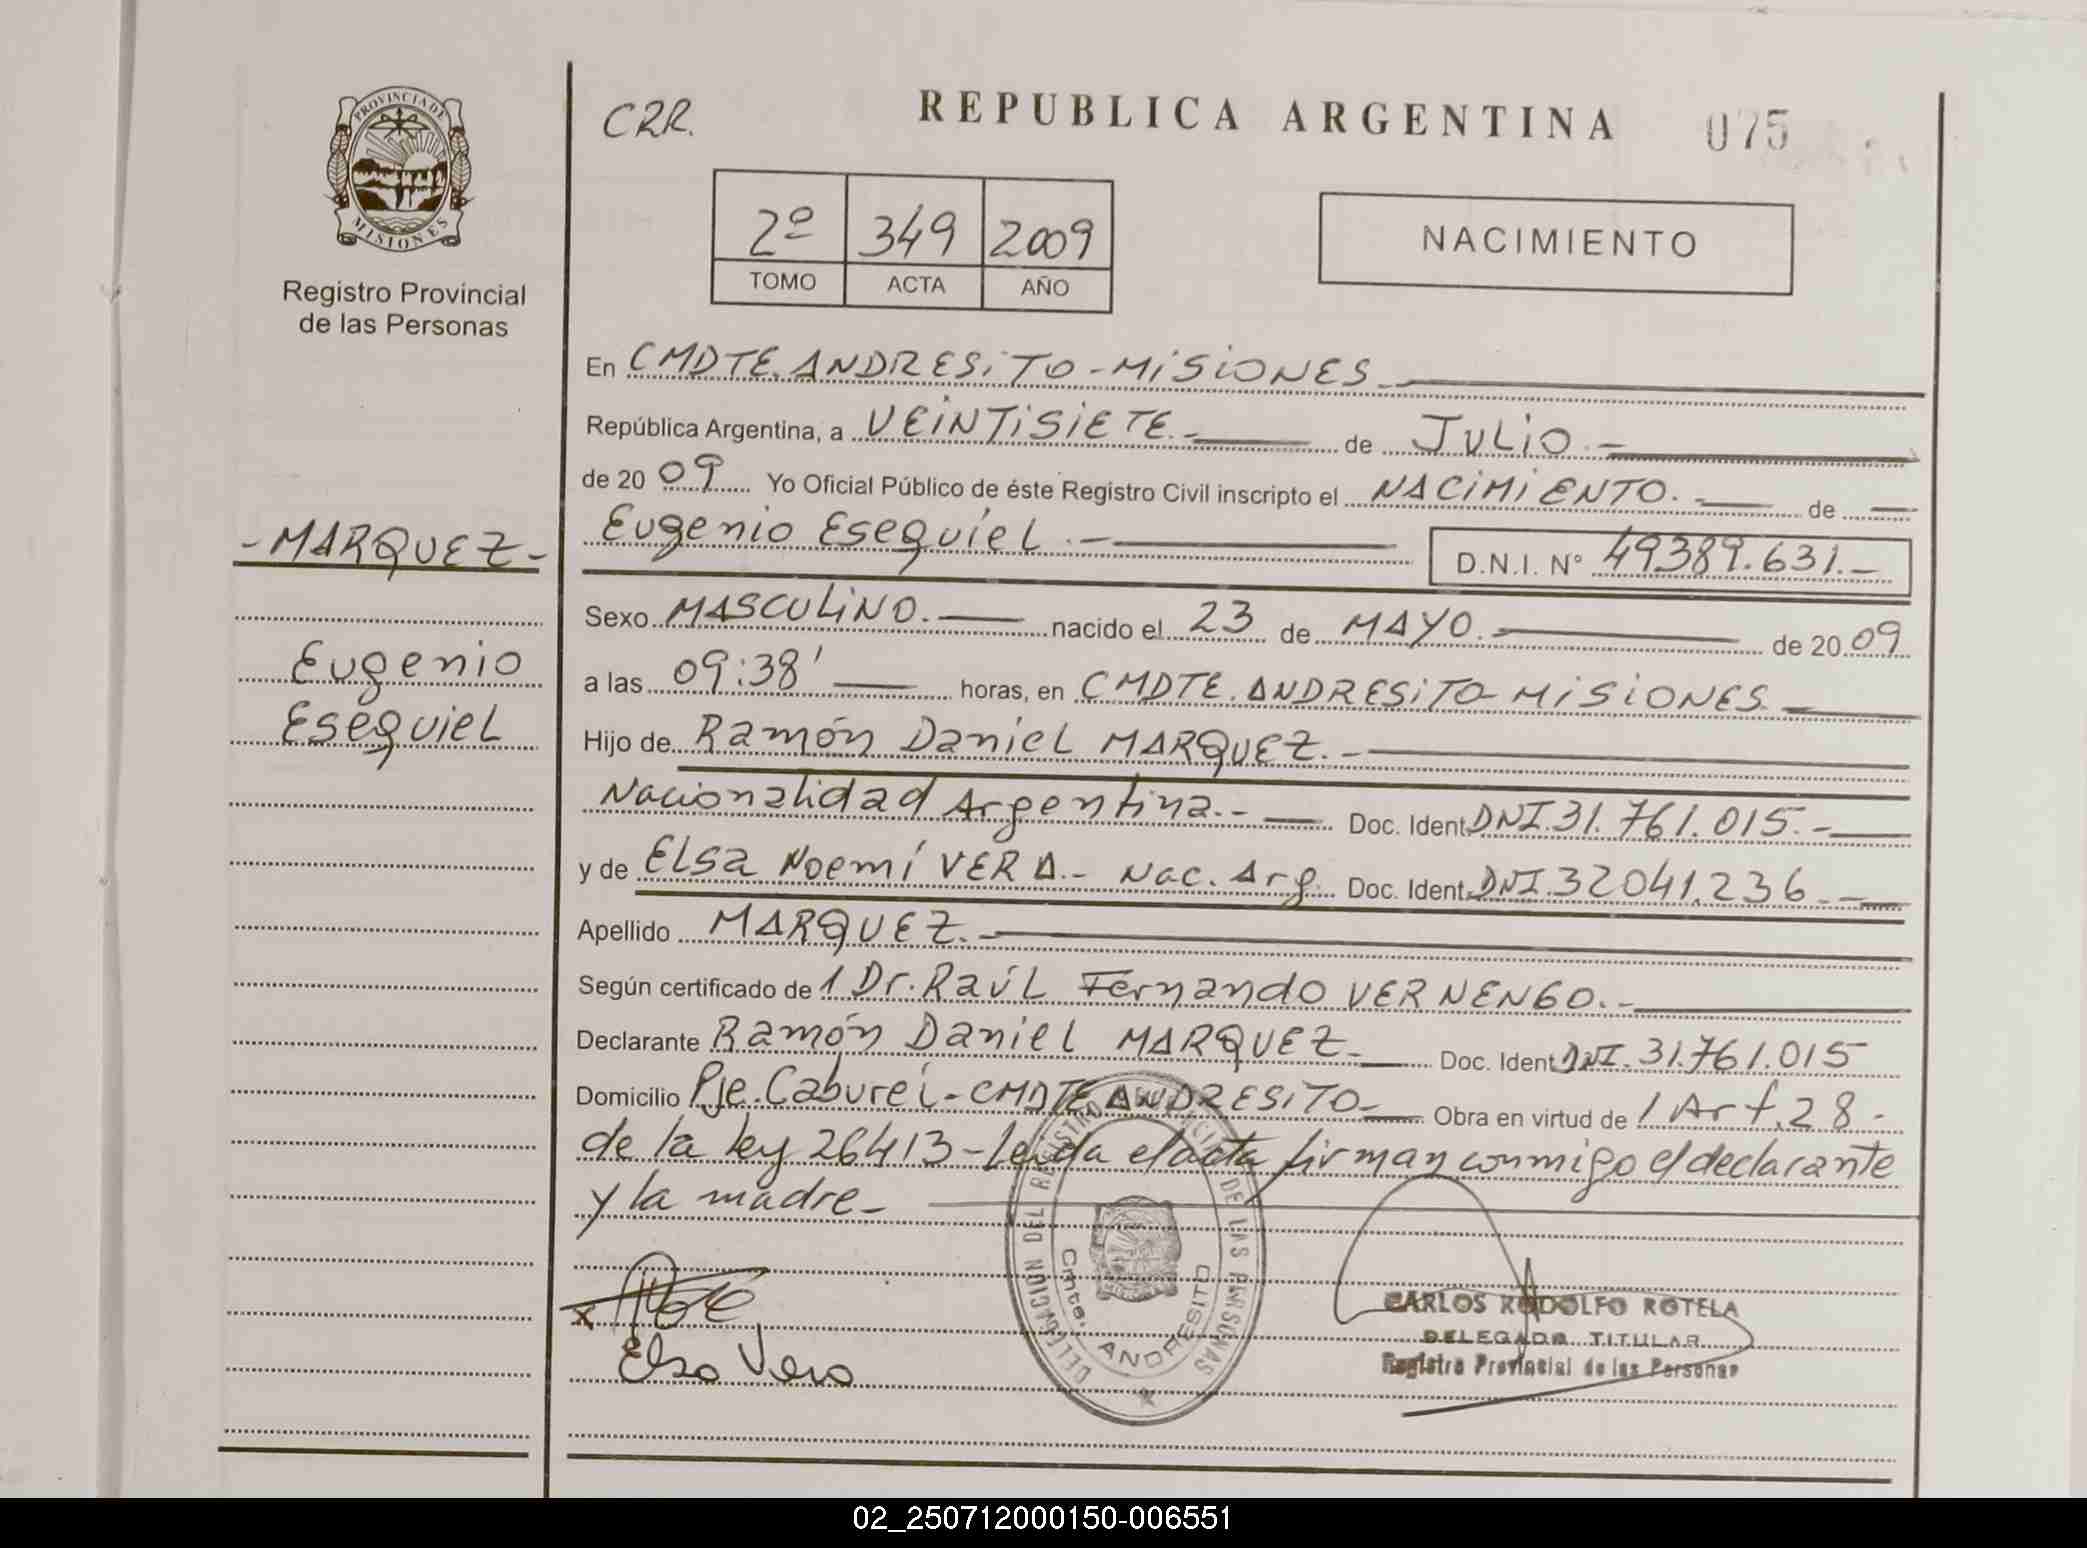 PROVINCIA DE
MISIONES
Registro Provincial
de las Personas
CRR.
REPUBLICA ARGENTINA
075
2º 349 2009
TOMO ACTA AÑO
NACIMIENTO
En CMDTE. ANDRESiTO - MiSiONES.-
República Argentina, a VEiNTiSiETE.- de JULiO.-
de 2009 Yo Oficial Público de éste Registro Civil inscripto el NACiMiENTO.- de -
- MARQUEZ -
Eugenio Esequiel.-
D.N.I. Nº 49389.631.-
Sexo MASCULiNO.- nacido el 23 de MAYO.- de 2009
Eugenio
a las 09:38' horas, en CMDTE. ANDRESiTO - MiSiONES.-
Esequiel
Hijo de Ramón Daniel MARQUEZ.-
Nacionalidad Argentina.- Doc. Ident. DNI.31.761.015.-
y de Elsa Noemí VERA.- Nac. Arg. Doc. Ident. DNI.32041.236.-
Apellido MARQUEZ.-
Según certificado de 1 Dr. Raúl Fernando VERNENGO.-
Declarante Ramón Daniel MARQUEZ.- Doc. Ident. DNI.31.761.015
Domicilio Pje. Cabureí - CMDTE ANDRESiTO- Obra en virtud de l Art. 28-
de la ley 26413 - Leída el acta firman conmigo el declarante
y la madre-
DELEGACION DEL REGISTRO PROVINCIAL DE LAS PERSONAS
Cmte. ANDRESITO
x
Elsa Vera
CARLOS RODOLFO ROTELA
DELEGADO TITULAR
Registro Provincial de las Personas
02_250712000150-006551